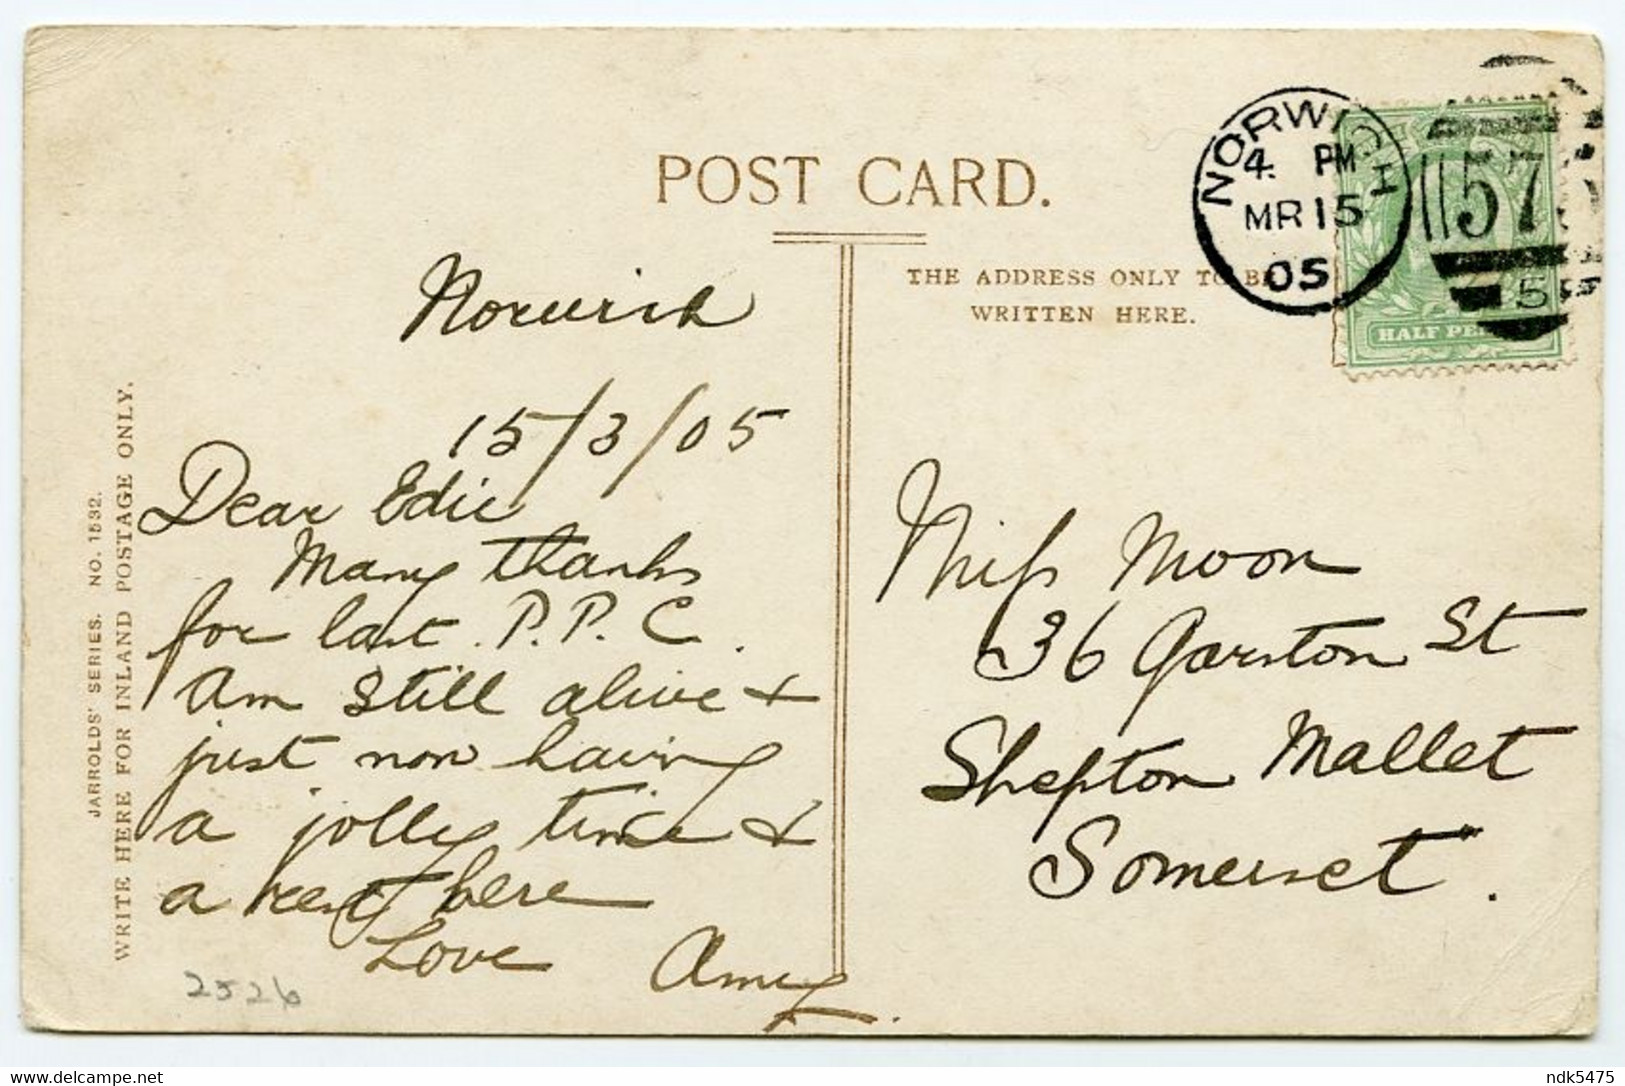 POST CARD.
THE ADDRESS ONLY TO BE
WRITTEN HERE.
NORWICH
4 PM
MR 15
05
575
5
HALF PE
JARROLDS' SERIES. NO. 1532.
WRITE HERE FOR INLAND POSTAGE ONLY.
Norwich
15/3/05
Dear Edie
Many thanks
for last P.P.C.
Am still alive &
just now having
a jolly time &
a rest here
Love Amy.
Miss Moon
36 Garston St
Shepton Mallet
Somerset.
2526
ndk5475